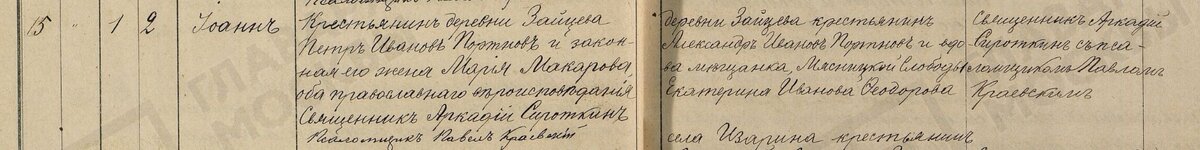 15 " 1 2 Іоаннъ
Крестьянинъ деревни Зайцева
Петръ Ивановъ Портновъ и закон-
ная его жена Марія Макарова,
оба православнаго вѣроисповѣданія
Священникъ Аркадій Сироткинъ
Псаломщикъ Павелъ Краевскій
деревни Зайцева крестьянинъ
Александръ Ивановъ Портновъ и вдо-
ва мѣщанка, Мясницкой Слободы
Екатерина Иванова Ѳеодорова
села Изарина крестьянинъ
Священникъ Аркадій
Сироткинъ съ пса-
ломщикомъ Павломъ
Краевскимъ